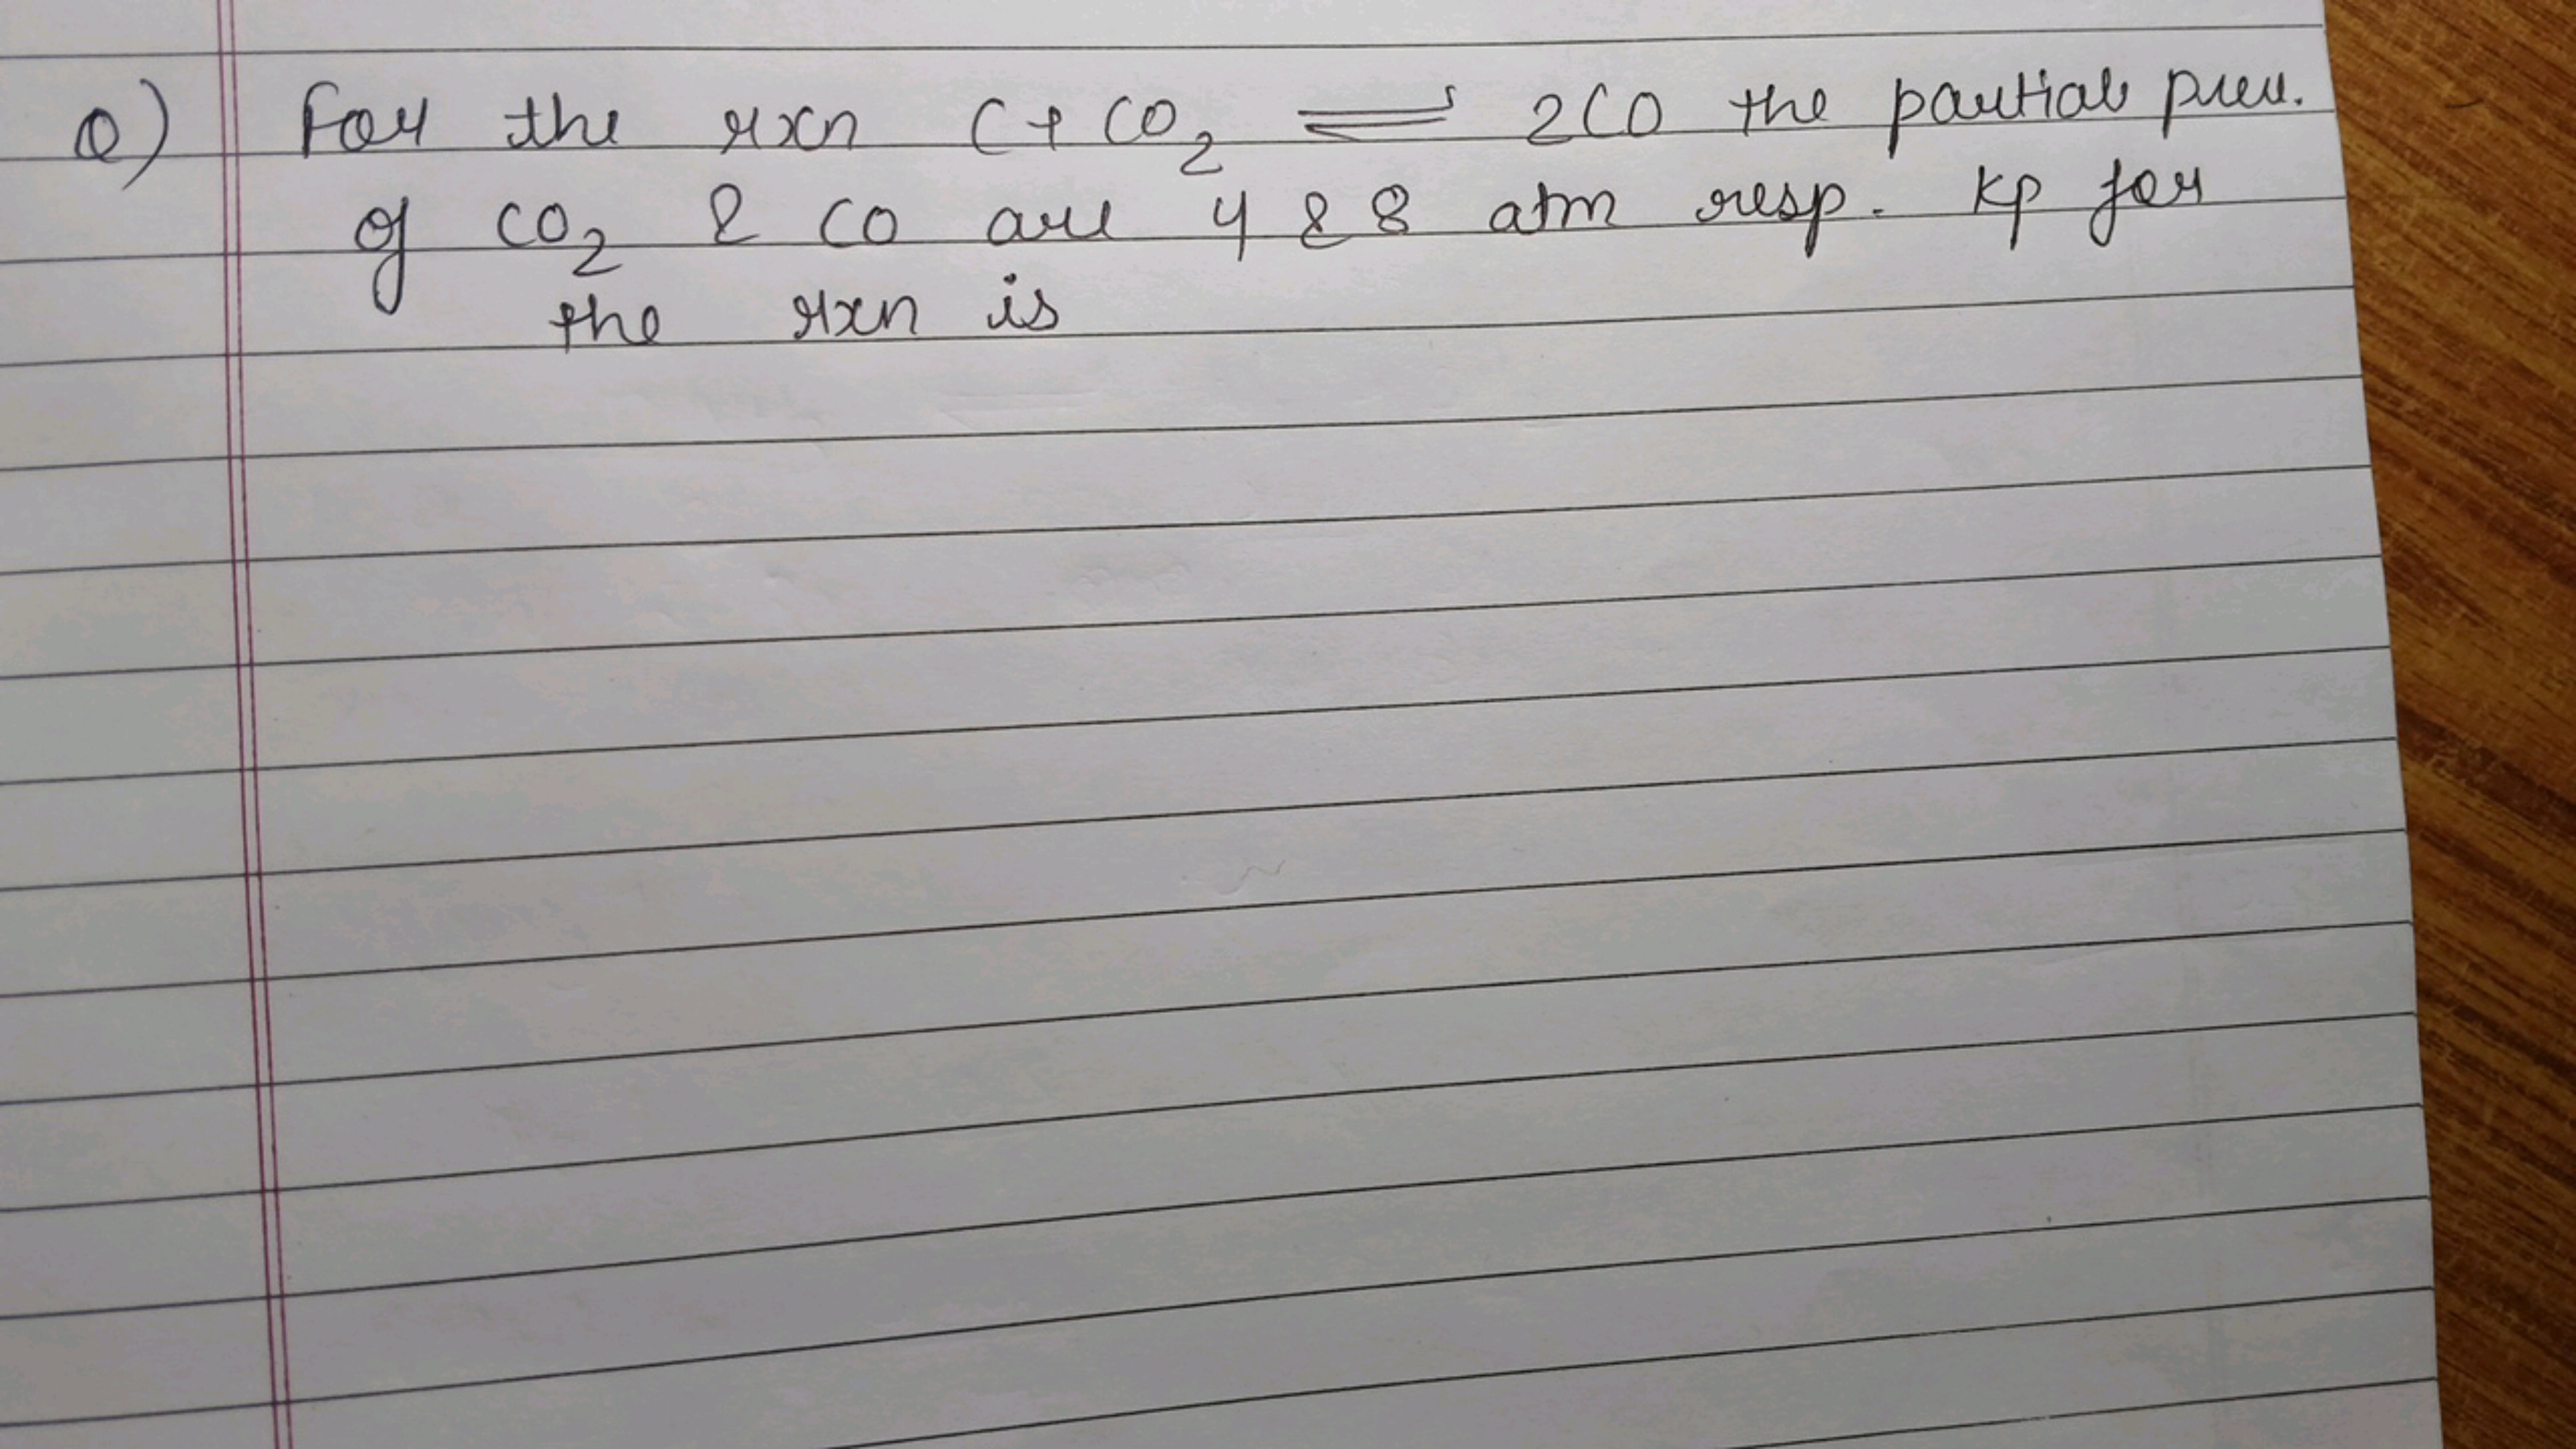 Q) For the rxn C + CO₂ ⇌ 2CO the partial pres.
of CO₂ & CO are 4 & 8 atm resp. Kp for
the rxn is